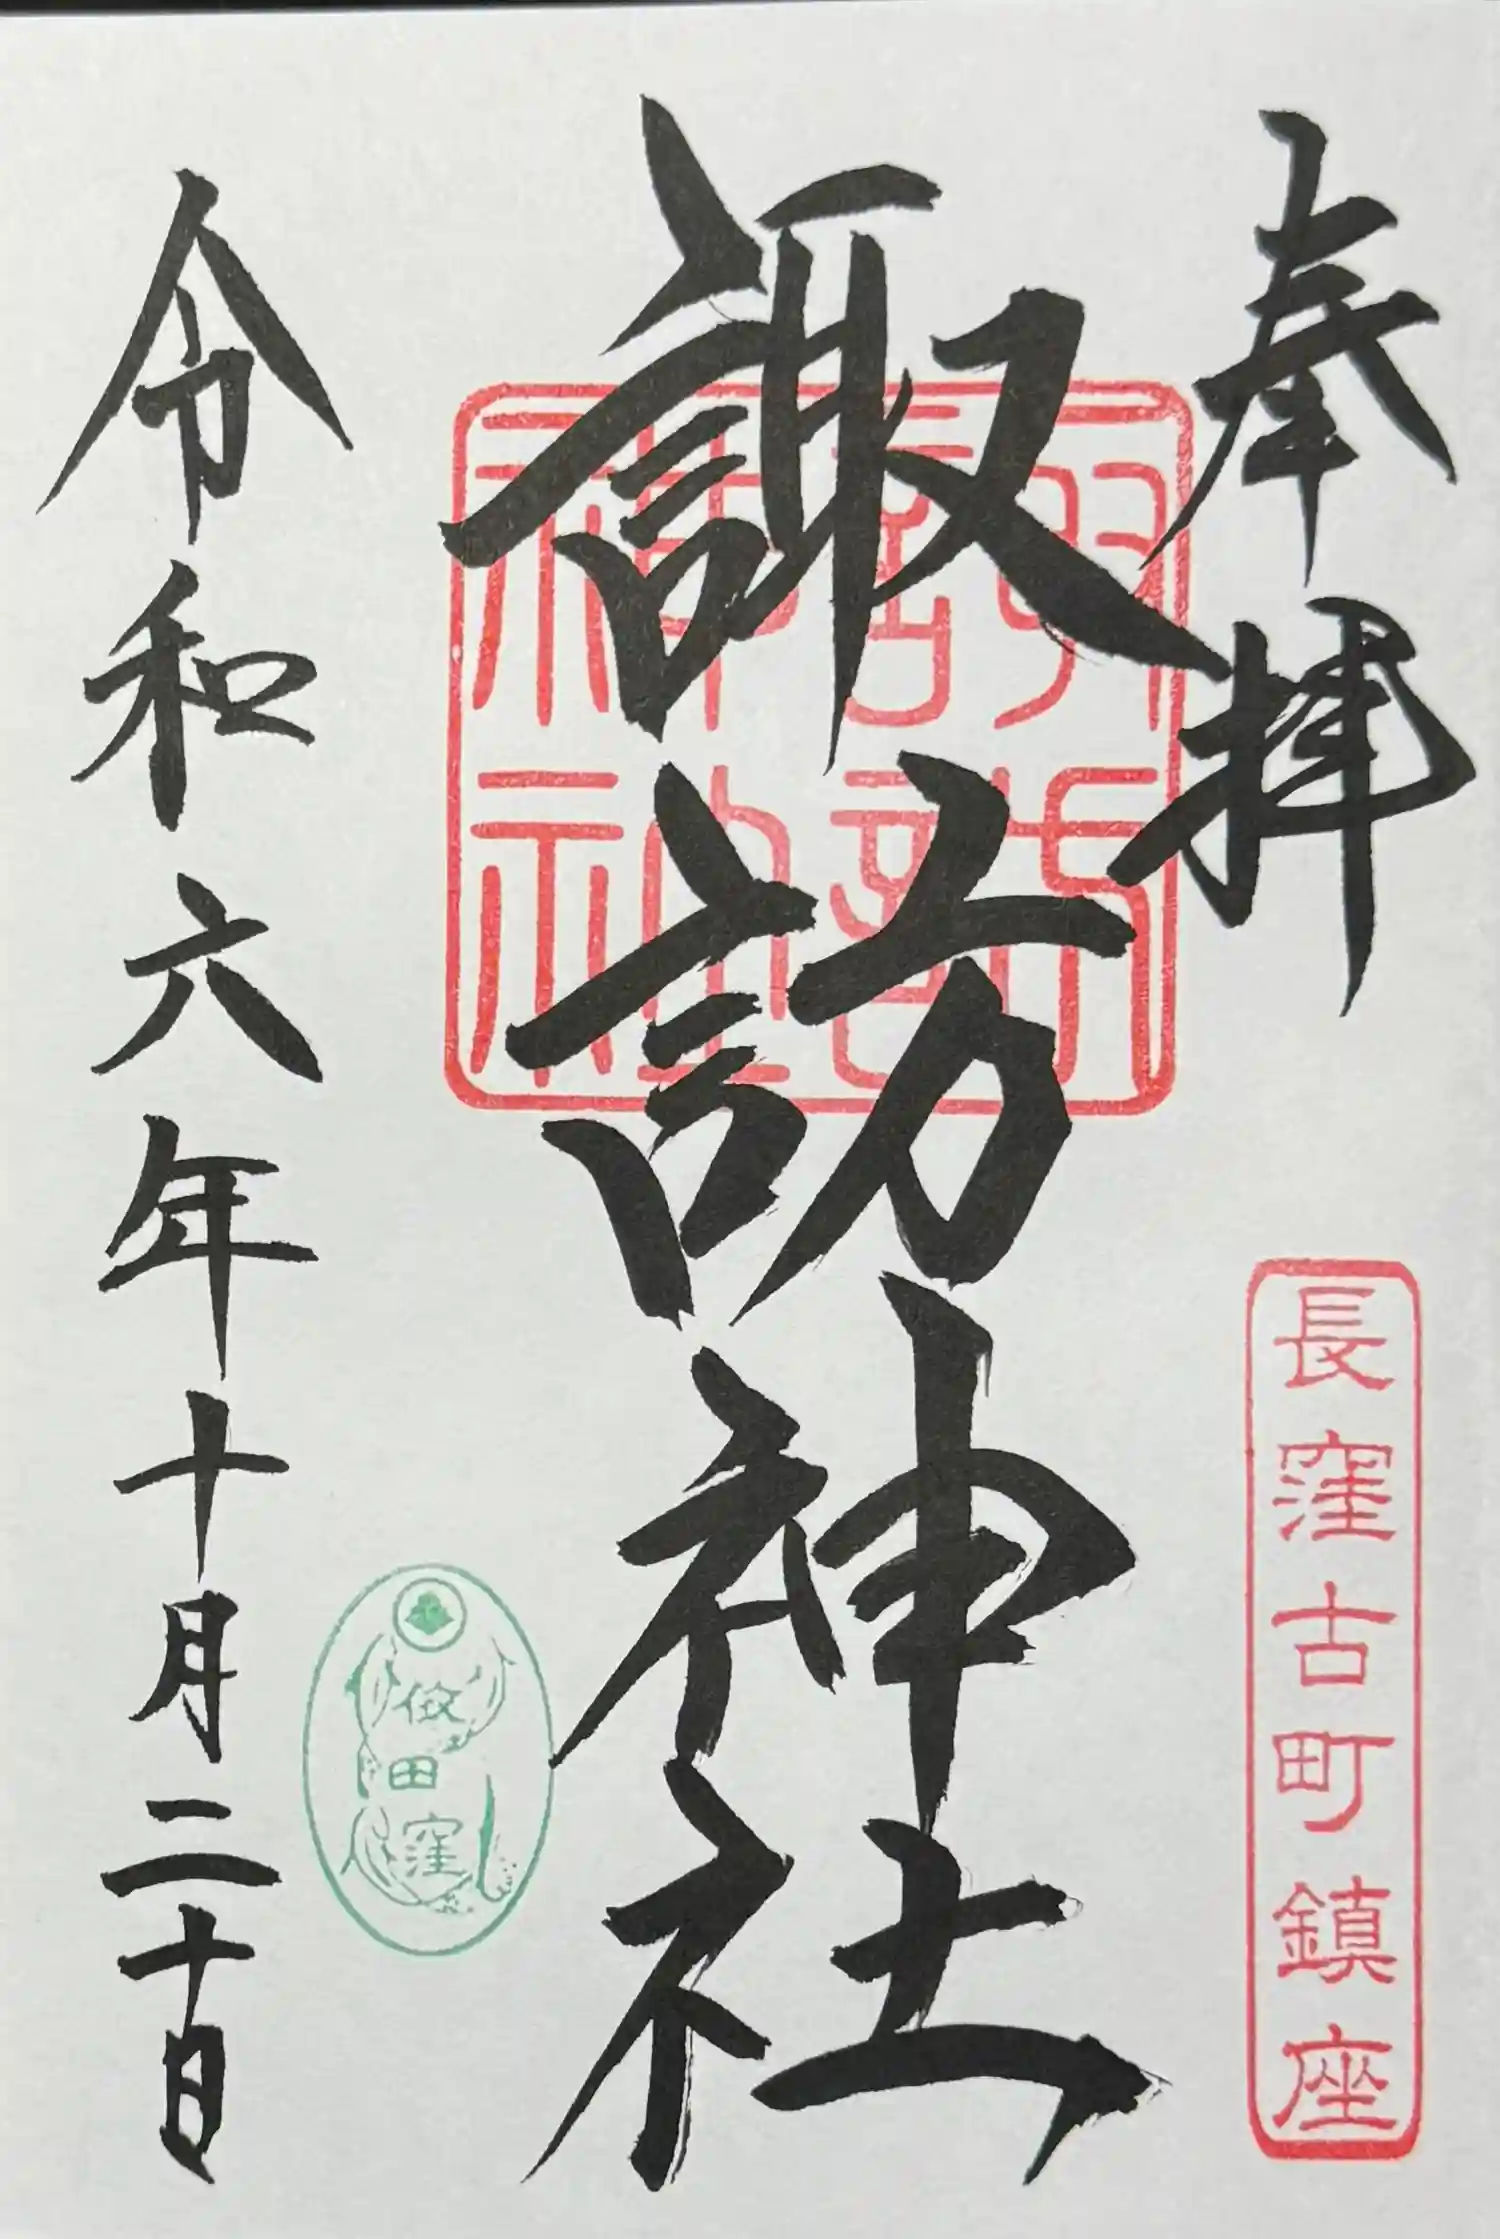 奉拝
長窪古町鎮座
諏訪神社
田窪
令和六年十月二十日